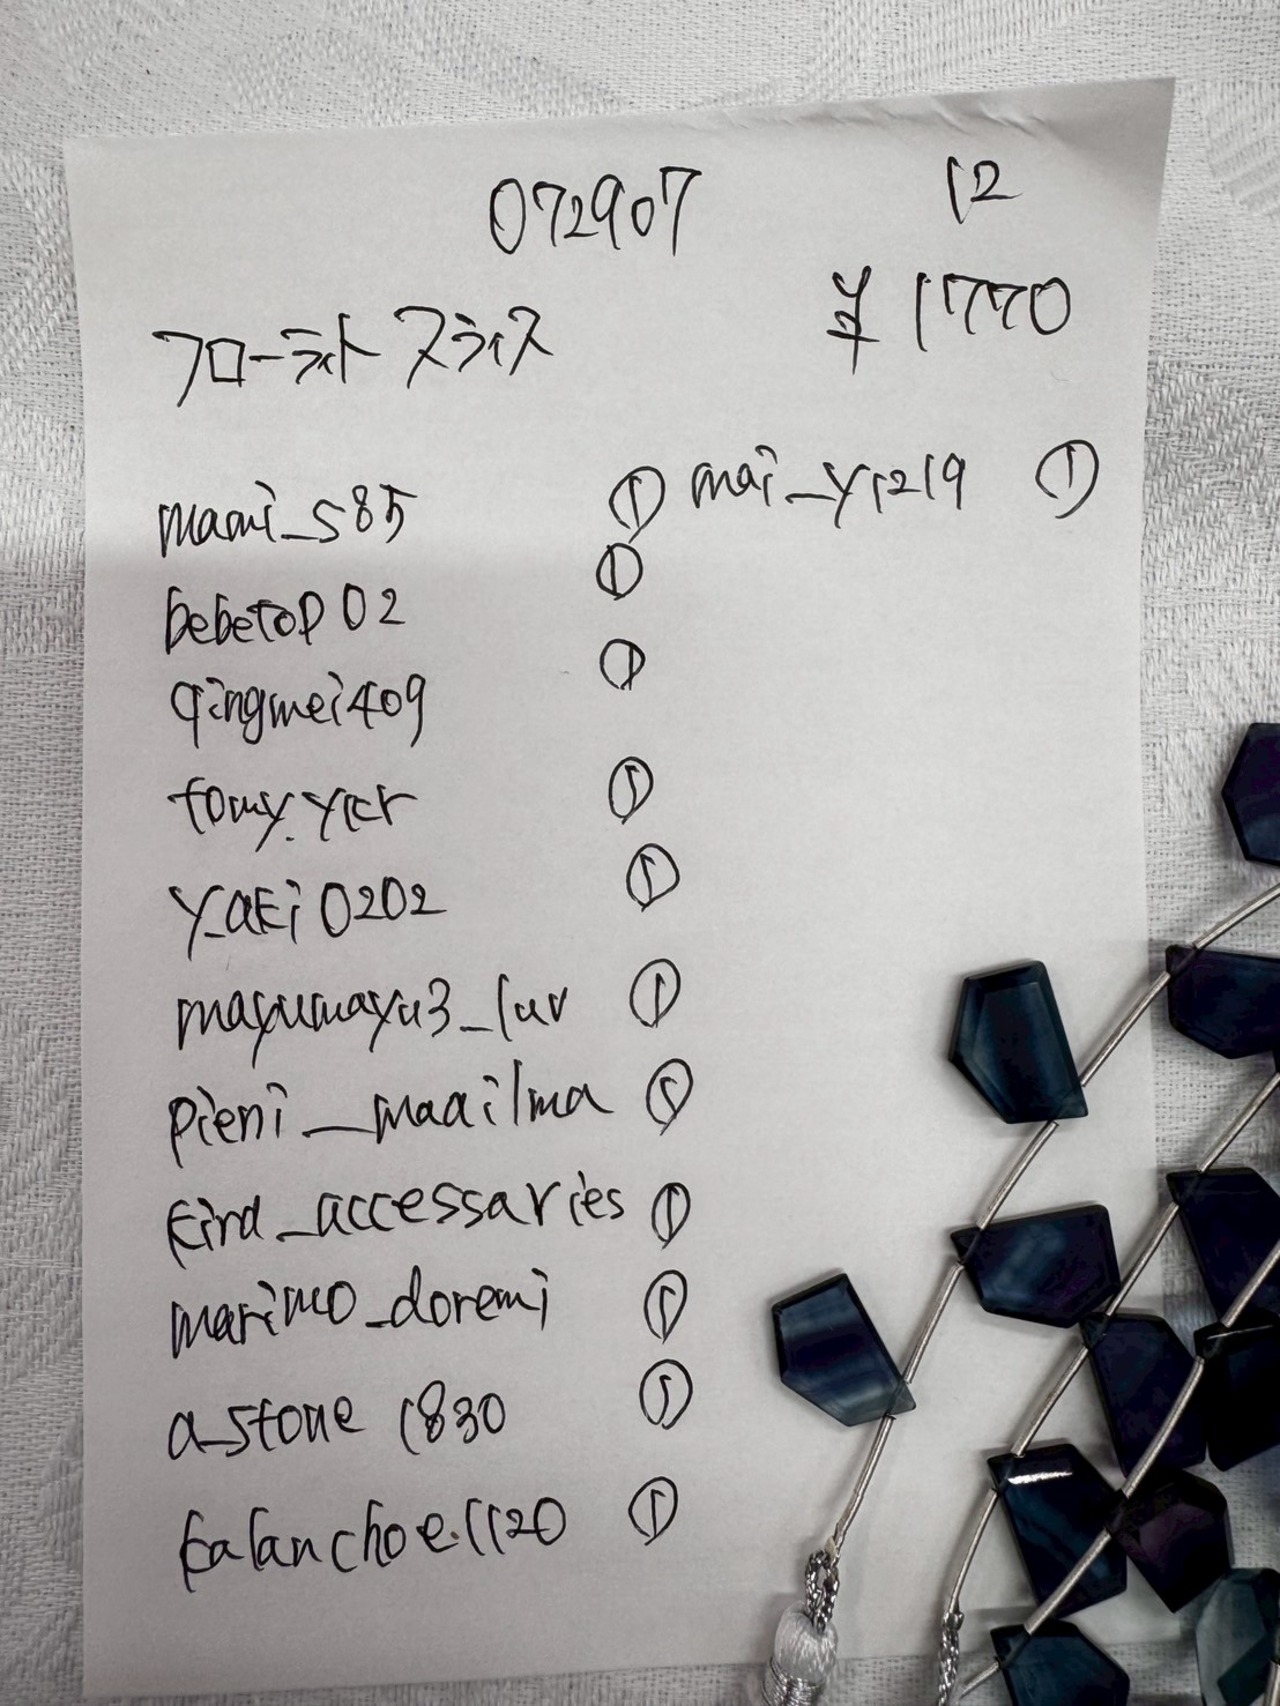 072907 12
フローライト スライス ¥1770
mami_s85 ① mai_y1219 ①
bebetop02 ①
qingmei409 ①
tomy.ykr ①
y_aki0202 ①
mayumayu3_luv ①
pieni_maailma ①
kird_accessaries ①
marimo_doremi ①
a_stone 1830 ①
kalanchoe.1120 ①